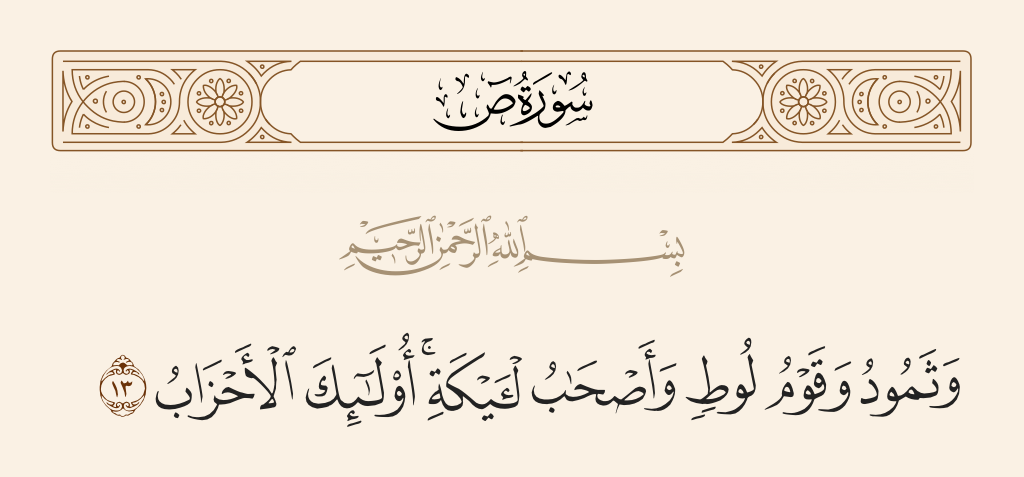 سُورَةُ صٓ
بِسْمِ ٱللَّهِ ٱلرَّحْمَٰنِ ٱلرَّحِيمِ
وَثَمُودُ وَقَوْمُ لُوطٍ وَأَصْحَٰبُ لْـَٔيْكَةِ ۚ أُو۟لَٰٓئِكَ ٱلْأَحْزَابُ ١٣